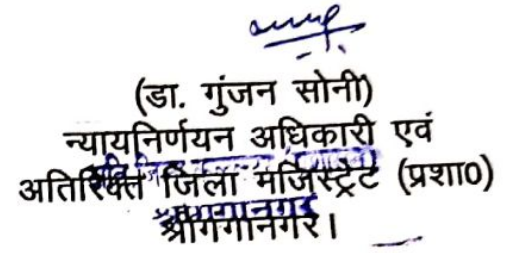 (डा. गुंजन सोनी)
न्यायनिर्णयन अधिकारी एवं
अतिरिक्त जिला मजिस्ट्रेट (प्रशा0)
श्रीगंगानगर।